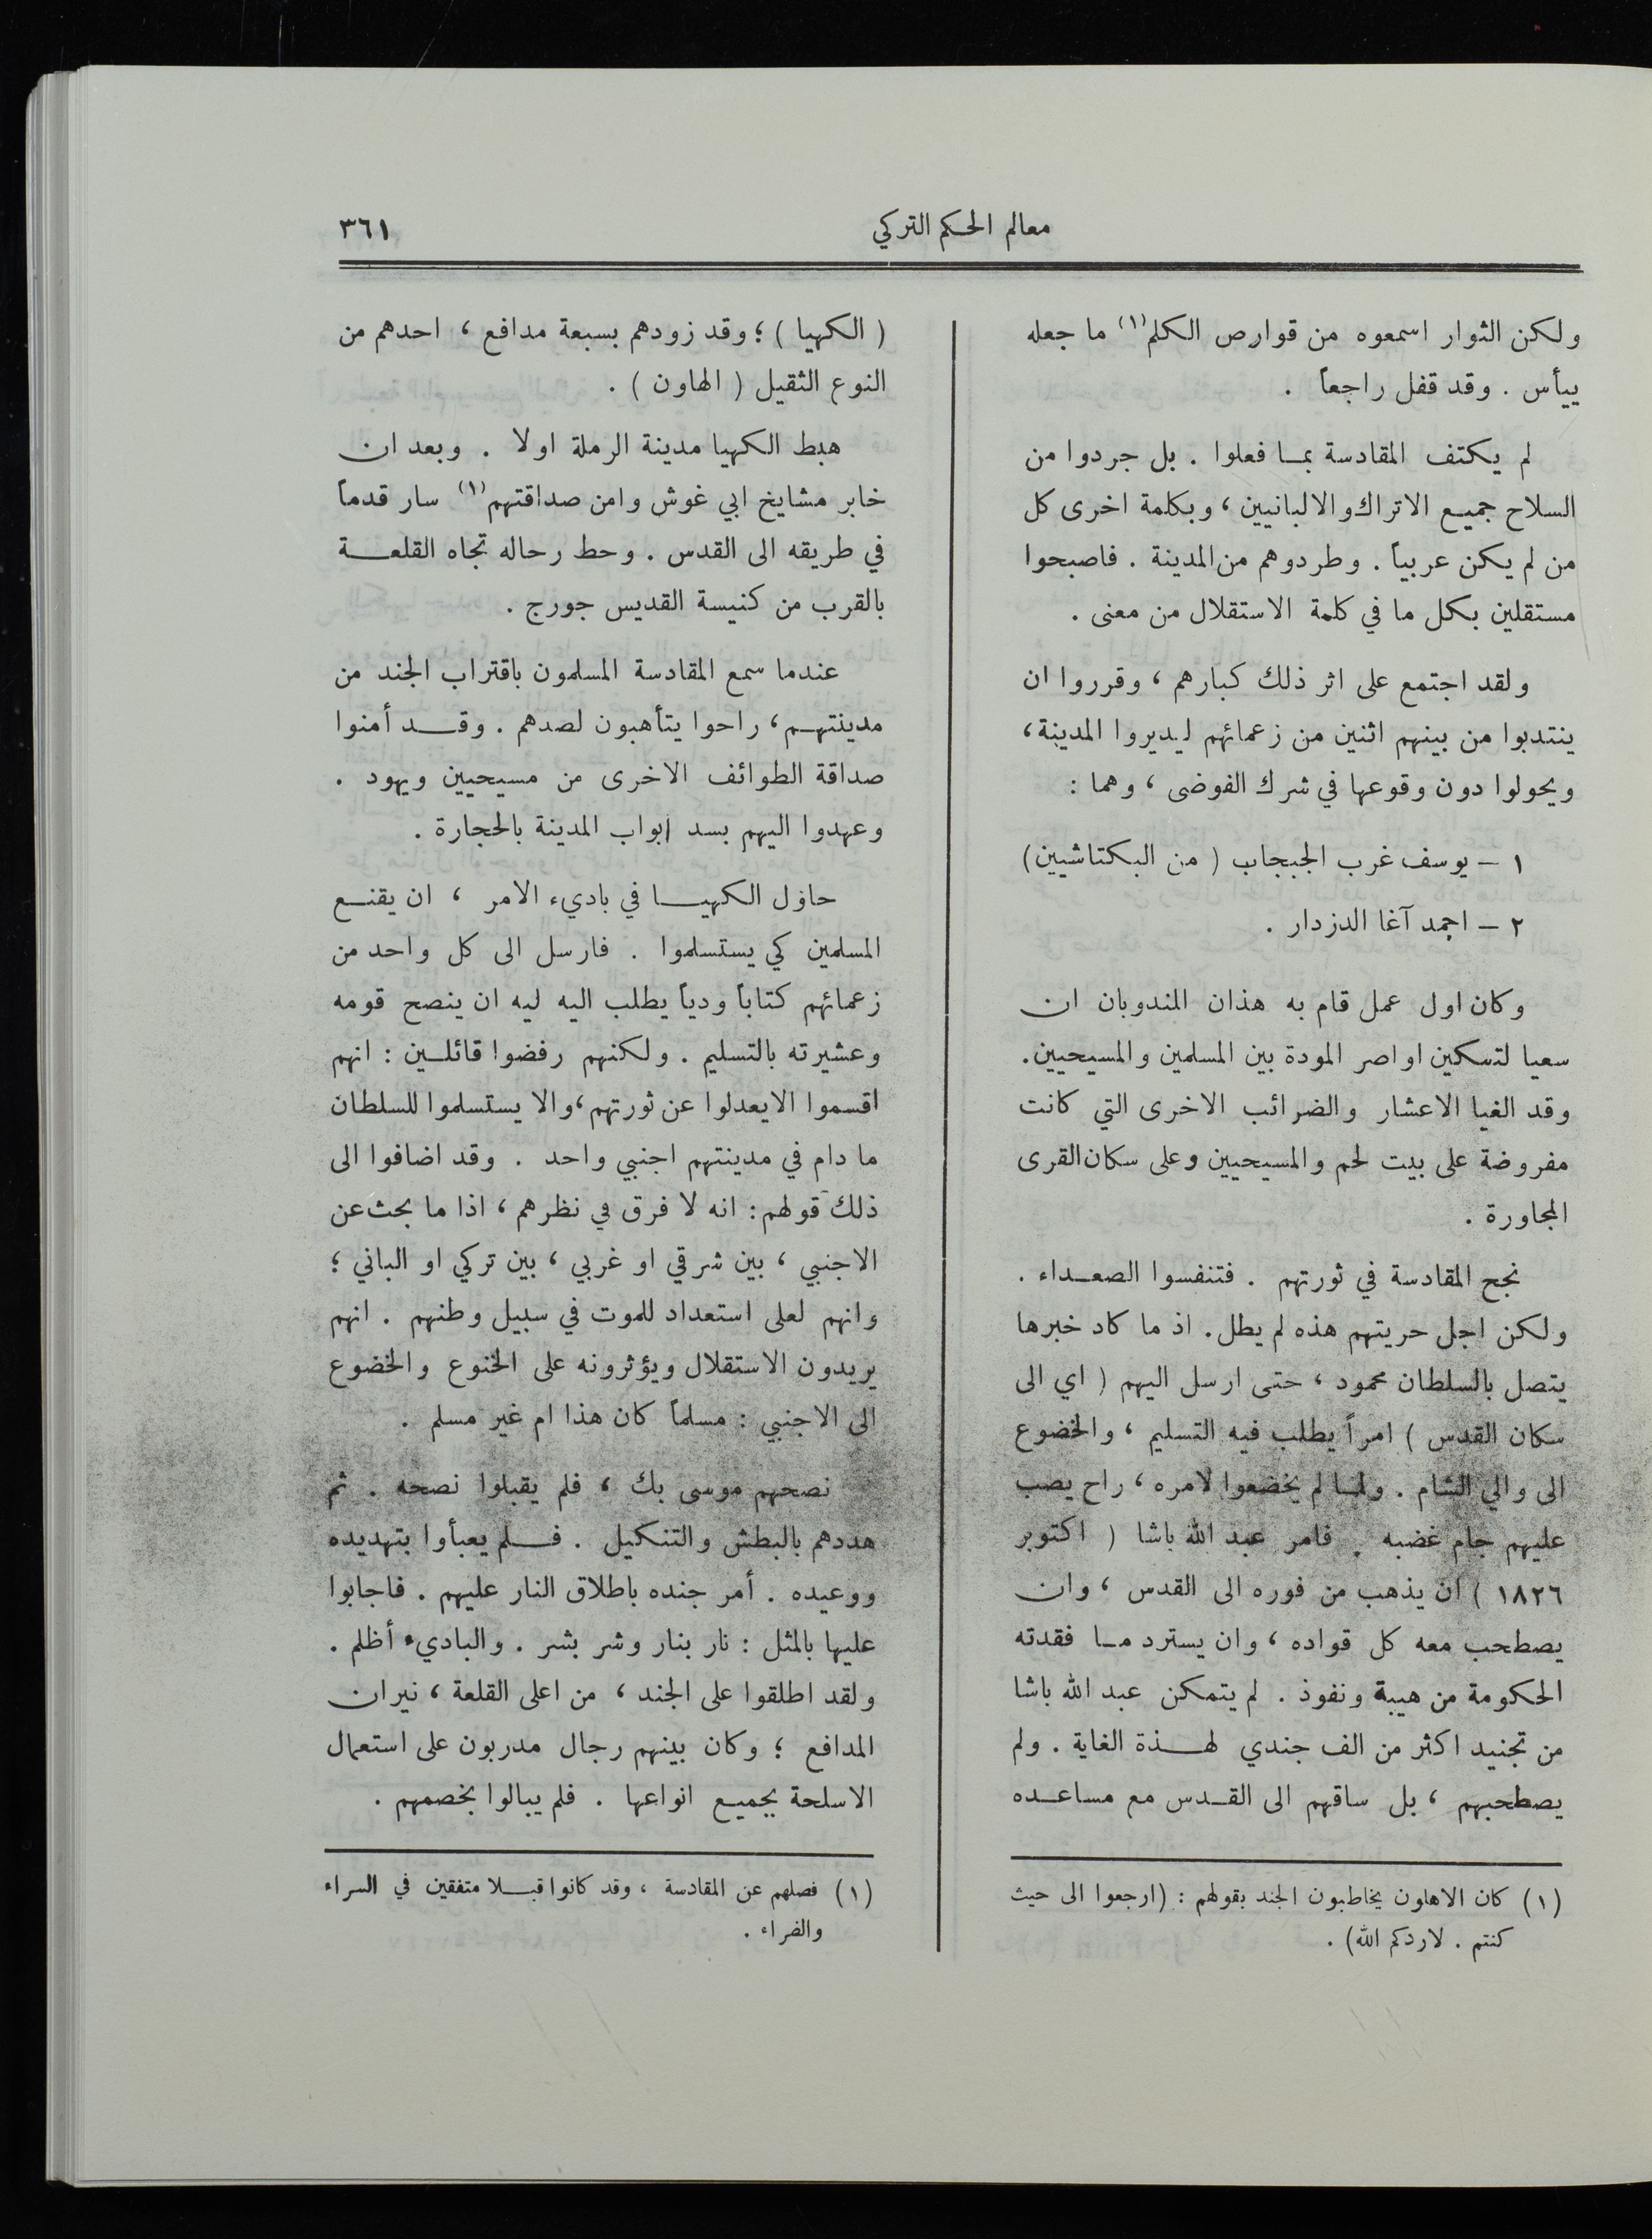 معالم الحكم التركي
٣٦١
ولكن الثوار اسمعوه من قوارص الكلم(١) ما جعله
ييأس . وقد قفل راجعاً .
لم يكتف المقادسة بما فعلوا . بل جردوا من
السلاح جميع الاتراك والالبانيين ، وبكلمة اخرى كل
من لم يكن عربياً . وطردوهم من المدينة . فاصبحوا
مستقلين بكل ما في كلمة الاستقلال من معنى .
ولقد اجتمع على اثر ذلك كبارهم ، وقرروا ان
ينتدبوا من بينهم اثنين من زعمائهم ليديروا المدينة ،
ويحولوا دون وقوعها في شرك الفوضى ، وهما :
١ – يوسف غرب الجبجاب ( من البكتاشيين )
٢ – احمد آغا الدزدار .
وكان اول عمل قام به هذان المندوبان ان
سعيا لتسكين اواصر المودة بين المسلمين والمسيحيين .
وقد الغيا الاعشار والضرائب الاخرى التي كانت
مفروضة على بيت لحم والمسيحيين وعلى سكان القرى
المجاورة .
نجح المقادسة في ثورتهم . فتنفسوا الصعداء .
ولكن اجل حريتهم هذه لم يطل . اذ ما كاد خبرها
يتصل بالسلطان محمود ، حتى ارسل اليهم ( اي الى
سكان القدس ) امراً يطلب فيه التسليم ، والخضوع
الى والي الشام . ولما لم يخضعوا لامره ، راح يصب
عليهم جام غضبه . فامر عبد الله باشا ( اكتوبر
١٨٢٦ ) ان يذهب من فوره الى القدس ، وان
يصطحب معه كل قواده ، وان يسترد ما فقدته
الحكومة من هيبة ونفوذ . لم يتمكن عبد الله باشا
من تجنيد اكثر من الف جندي لهذة الغاية . ولم
يصطحبهم ، بل ساقهم الى القدس مع مساعده
(١) كان الاهلون يخاطبون الجند بقولهم : (ارجعوا الى حيث
كنتم . لاردكم الله) .
( الكهيا ) ؛ وقد زودهم بسبعة مدافع ، احدهم من
النوع الثقيل ( الهاون ) .
هبط الكهيا مدينة الرملة اولا . وبعد ان
خابر مشايخ ابي غوش وامن صداقتهم(١) سار قدماً
في طريقه الى القدس . وحط رحاله تجاه القلعة
بالقرب من كنيسة القديس جورج .
عندما سمع المقادسة المسلمون باقتراب الجند من
مدينتهم ، راحوا يتأهبون لصدهم . وقد أمنوا
صداقة الطوائف الاخرى من مسيحيين ويهود .
وعهدوا اليهم بسد ابواب المدينة بالحجارة .
حاول الكهيا في باديء الامر ، ان يقنع
المسلمين كي يستسلموا . فارسل الى كل واحد من
زعمائهم كتاباً ودياً يطلب اليه ليه ان ينصح قومه
وعشيرته بالتسليم . ولكنهم رفضوا قائلين : انهم
اقسموا الا يعدلوا عن ثورتهم ، والا يستسلموا للسلطان
ما دام في مدينتهم اجنبي واحد . وقد اضافوا الى
ذلك قولهم : انه لا فرق في نظرهم ، اذا ما بحث عن
الاجنبي ، بين شرقي او غربي ، بين تركي او الباني ؛
وانهم لعلى استعداد للموت في سبيل وطنهم . انهم
يريدون الاستقلال ويؤثرونه على الخنوع والخضوع
الى الاجنبي : مسلماً كان هذا ام غير مسلم .
نصحهم موسى بك ، فلم يقبلوا نصحه . ثم
هددهم بالبطش والتنكيل . فلم يعبأوا بتهديده
ووعيده . أمر جنده باطلاق النار عليهم . فاجابوا
عليها بالمثل : نار بنار وشر بشر . والباديء أظلم .
ولقد اطلقوا على الجند ، من اعلى القلعة ، نيران
المدافع ؛ وكان بينهم رجال مدربون على استعمال
الاسلحة بجميع انواعها . فلم يبالوا بخصمهم .
(١) فصلهم عن المقادسة ، وقد كانوا قبلا متفقين في السراء
والضراء .